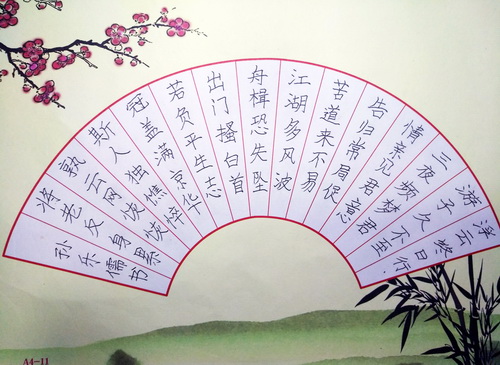 浮云终日行.
游子久不至
三夜频梦君
情亲见君意
告归常局促
苦道来不易
江湖多风波
舟楫恐失坠
出门搔白首
若负平生志
冠盖满京华
斯人独憔悴
孰云网恢恢
将老反身累
孙乐儒书
A4-11